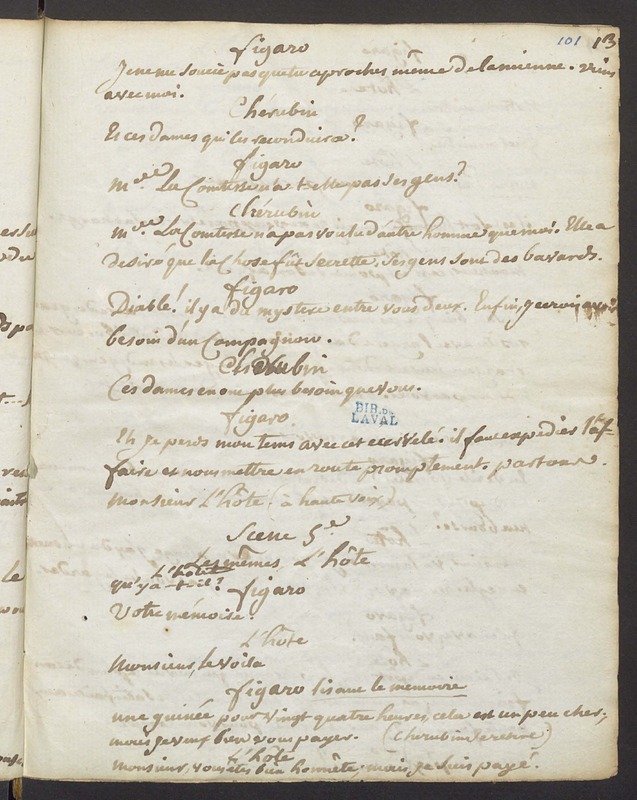 101 13
figaro
Je ne me soucie pas que tu aproches même de la mienne. viens
avec moi.
Chérubin
Et ces dames qui les reconduira?
figaro
M.de La Comtesse n'a t-elle pas ses gens?
Chérubin
M.de La Comtesse n'a pas voulu d'autre homme que moi. Elle a
desiré que la Chose fût secrette. Ses gens sont des bavards.
figaro
Diable! il y a du mystere entre vous deux. Enfin, je crois avoir
besoin d'un Compagnon.
Chérubin
Ces dames en ont plus besoin que vous.
figaro
BIB. DE
LAVAL
Eh je perds mon tems avec cet ecervelé. il faut expedier l'af-
faire et nous mettre en route promptement. partons.
Monsieur L'hôte (à haute voix)
Scene 5.e
Les mêmes, L'hôte
L'hôte
qu'y a-t-il?
figaro
Votre mémoire.
L'hôte
Monsieur, le voila
figaro lisant le memoire
une guinée pour vingt quatre heures, cela est un peu cher,
mais je veux bien vous payer. (Cherubin se retire)
L'hôte
Monsieur, vous êtes bien honnête, mais, je suis payé.